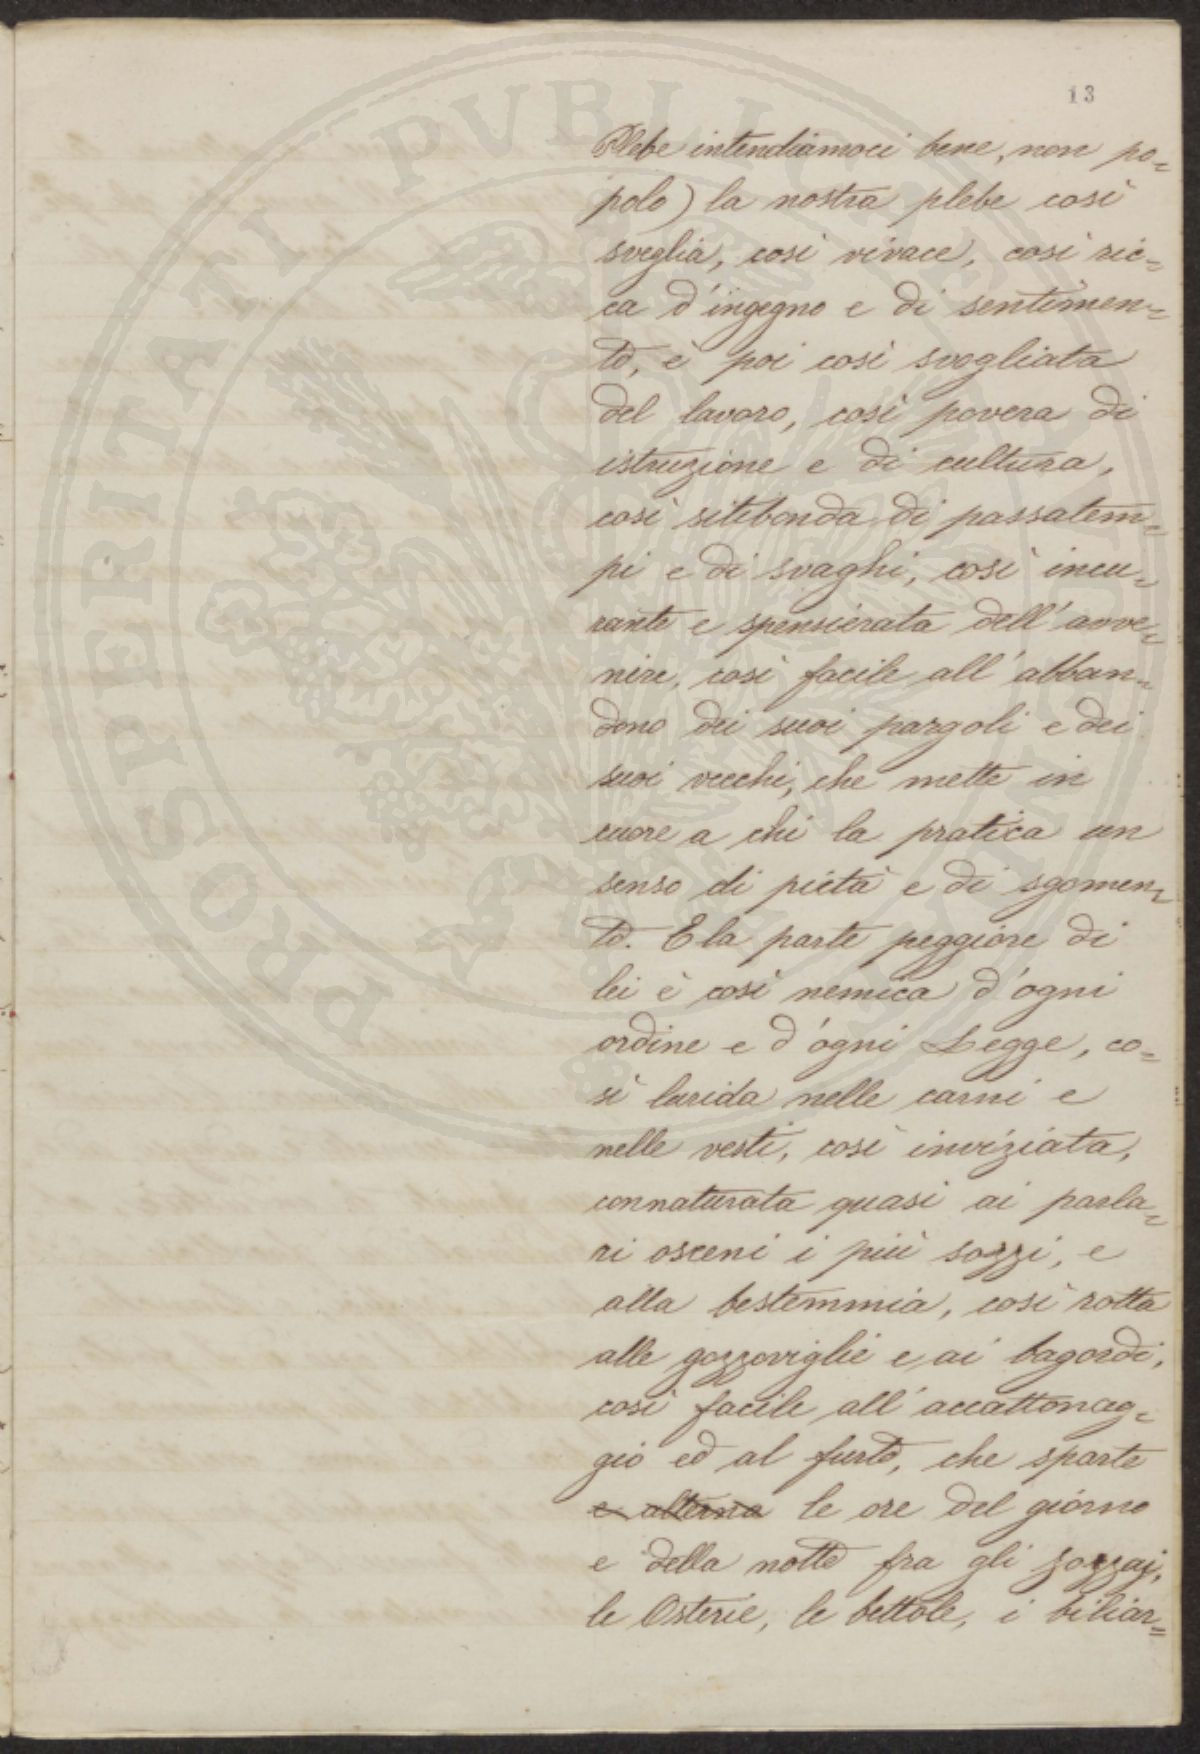 13
Plebe intendiamoci bene, non po=
polo) la nostra plebe così
sveglia, così vivace, così ric=
ca d'ingegno e di sentimen=
to, è poi così svogliata
del lavoro, così povera di
istruzione e di cultura,
così sitibonda di passatem=
pi e di svaghi, così incu=
rante e spensierata dell'avve=
nire, così facile all'abban=
dono dei suoi pargoli e dei
suoi vecchi, che mette in
cuore a chi la pratica un
senso di pietà e di sgomen=
to. E la parte peggiore di
lei è così nemica d'ogni
ordine e d'ogni Legge, co=
sì lurida nelle carni e
nelle vesti, così inviziata,
connaturata quasi ai parla=
ri osceni i più sozzi, e
alla bestemmia, così rotta
alle gozzoviglie e ai bagordi,
così facile all'accattonag=
gio ed al furto, che sparte
e alterna le ore del giorno
e della notte fra gli
le Osterie, le bettole, i biliar=
PROSPERITATI PVBLICAE